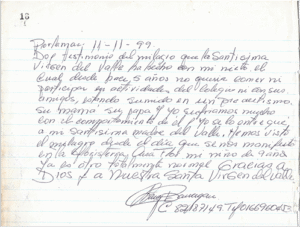 18
Porlamar, 11-11-99
Doy testimonio del milagro que la Santisima
Virgen del Valle ha hecho con mi nieto el
cual desde hace 5 años no quiere comer ni
participar en actividades del colegio ni con sus
amigos, estando sumido en un
su mama, su papa y yo sufriamos mucho
con el comportamiento de el yo a lo entregué
a mi Santisima madre del Valle. Hemos visto
el milagro desde el dia que se nos manifesto
en la mi niño de 9 años
Ya es otro totalmente normal Gracias a
Dios y a Nuestra Santa Virgen del Valle.